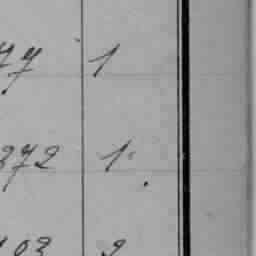 77 1
372 1.
103 2